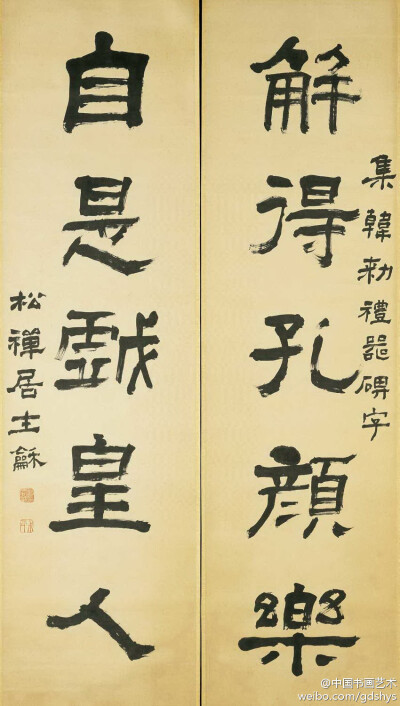 集韓勑禮器碑字
解得孔顏樂
自是戲皇人
松禪居士龢
@中国书画艺术
weibo.com/gdshys